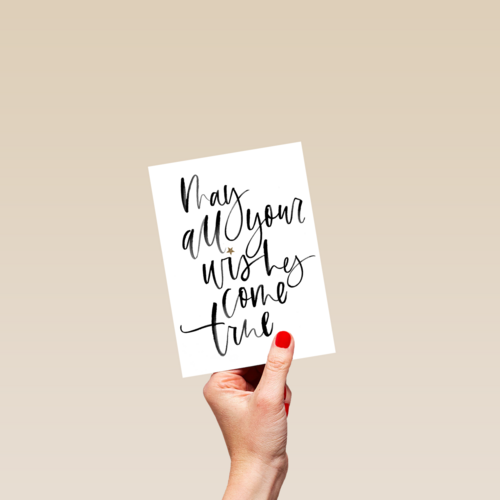 May
all your
wishes
come
true